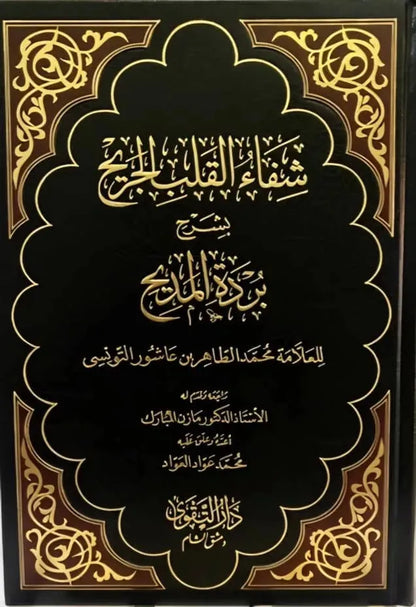 شِفَاءُ القَلبِ الجَرِيحِ
بِشَرْحِ
بُرْدَةِ المَدِيحِ
للعلّامة محمّد الطّاهر بن عاشور التّونسي
راجعه وقدم له
الأستاذ الدكتور مازن المبارك
اعتنى وعلق عليه
محمد عواد العواد
دار التقوى
دمشق الشام